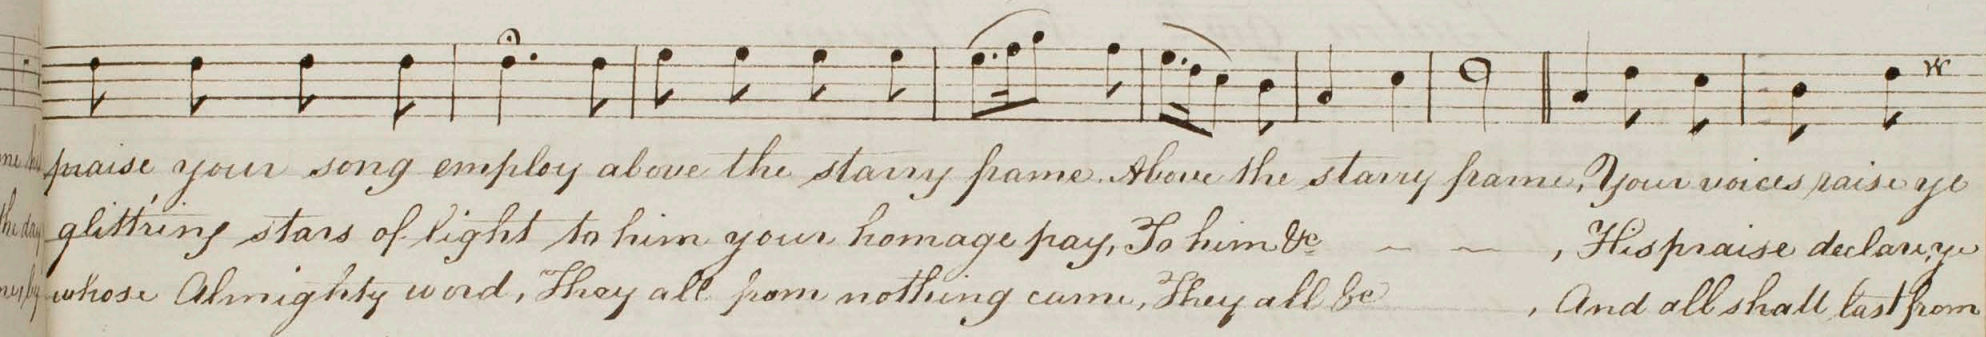 praise your song employ above the starry frame. Above the starry frame, Your voices raise ye
glitt'ring stars of light to him your homage pay, To him &c , His praise declare, ye
whose Almighty word, They all from nothing came, They all &c , And all shall last from